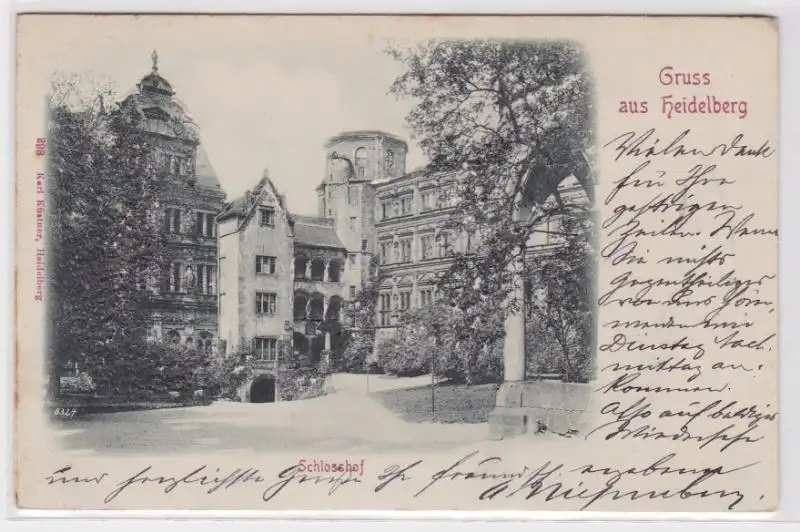 Gruss
aus Heidelberg
Vielen Dank
für Ihre
gestrigen
Zeilen. Wenn
Sie nichts
Gegentheiliges
von uns hören,
werden wir
Dienstag Nach-
mittag an-
kommen.
Also auf baldiges
Wiedersehn
und herzlichste Grüße Ihr freundl. ergebener
Schlosshof
898 Karl Küstner, Heidelberg
8327